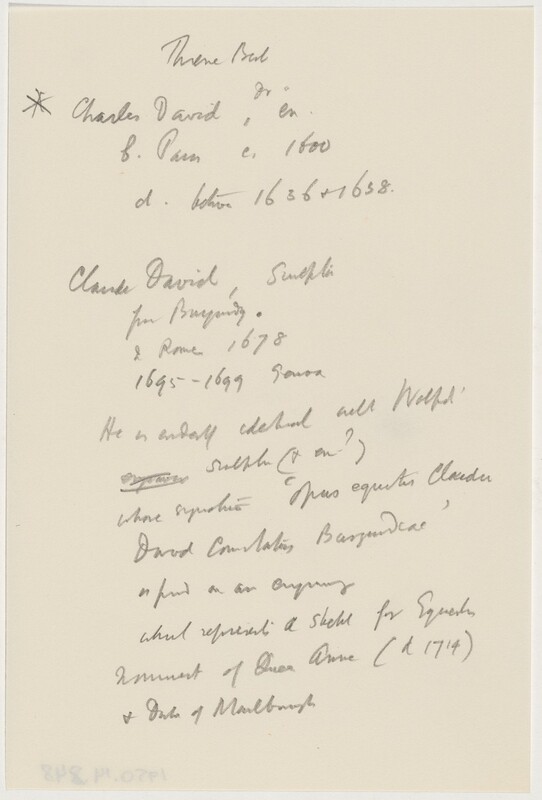 Thieme Beck
* Charles David, Dr. en.
b. Paris c. 1600
d. between 1636 & 1638.
Claude David, Sculptor
from Burgundy.
Rome 1678
1695-1699 Genoa
He is identical with
engraver sculptor (& en?)
whose signature "opus equitis Claudii
David Comitatus Burgundiae"
is found on an engraving
which represents a sketch for Equestrian
monument of Queen Anne (d 1714)
& Duke of Marlborough